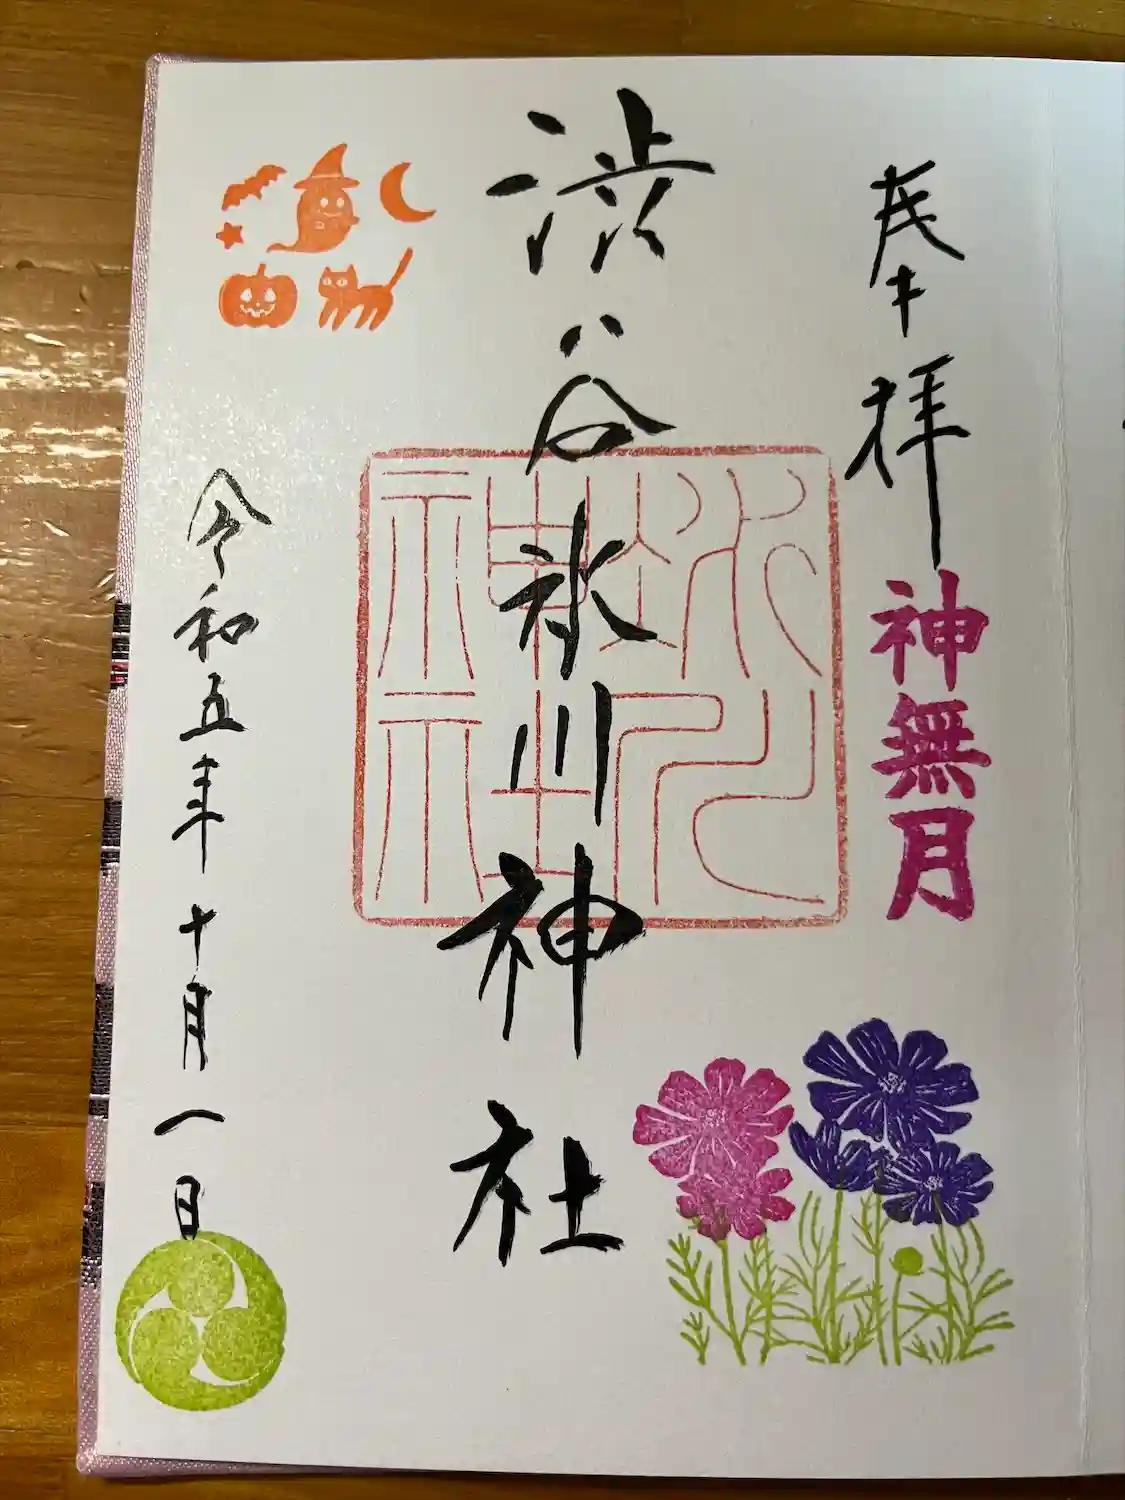 奉拝
神無月
渋谷氷川神社
氷川
神社
令和五年十月一日